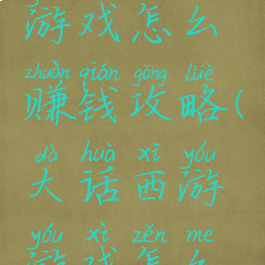 游戏怎么
zhuàn qián gōng lüè
赚钱攻略(
dà huà xī yóu
大话西游
yóu xì zěn me
游戏怎么